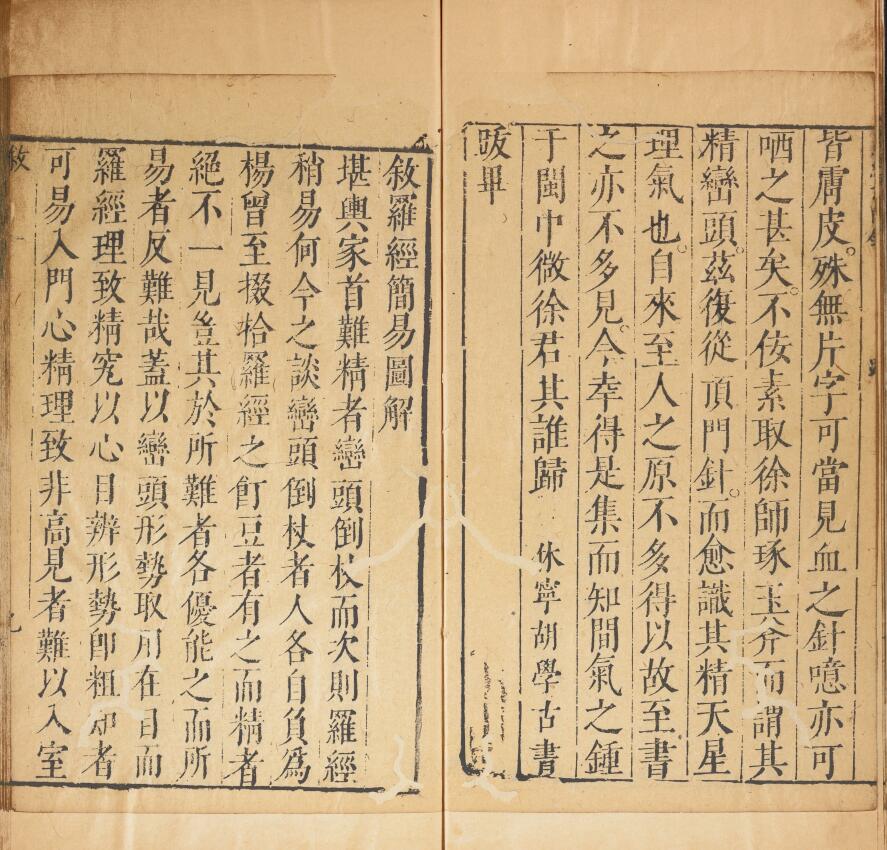 皆膚皮。殊無片字可當見血之針噫亦可
哂之甚矣。不侫素取徐師琢玉斧而謂其
精巒頭。茲復從頂門針。而愈識其精天星
理氣也。自來至人之原不多得以故至書
之亦不多見。今幸得是集而知間氣之鍾
于閩中微徐君其誰歸 休寧胡學古書
跋畢
敘羅經簡易圖解
堪輿家首難精者巒頭倒杖而次則羅經
稍易何今之談巒頭倒杖者人各自負為
楊曾至掇拾羅經之飣豆者有之而精者
絕不一見豈其於所難者各優能之而所
易者反難哉蓋以巒頭形勢取用在目而
羅經理致精究以心目辨形勢卽粗知者
可易入門心精理致非高見者難以入室
敘